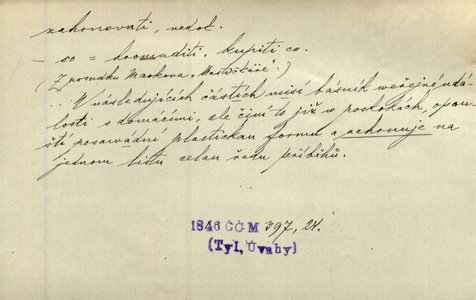 nahrnovati, nedok.
— co = hromaditi, kupiti co.
(Z posudku Markova „Mastičkáře“.)
... V následujících částech mísí básník veřejné uda-
losti s domácími, ale činí to již w poskokách, opou-
ští posawádní plastickau formu a nahrnuje na
jednom listu celau řadu příběhů.
1846 ČČM 397, 24.
(Tyl, Úvahy)